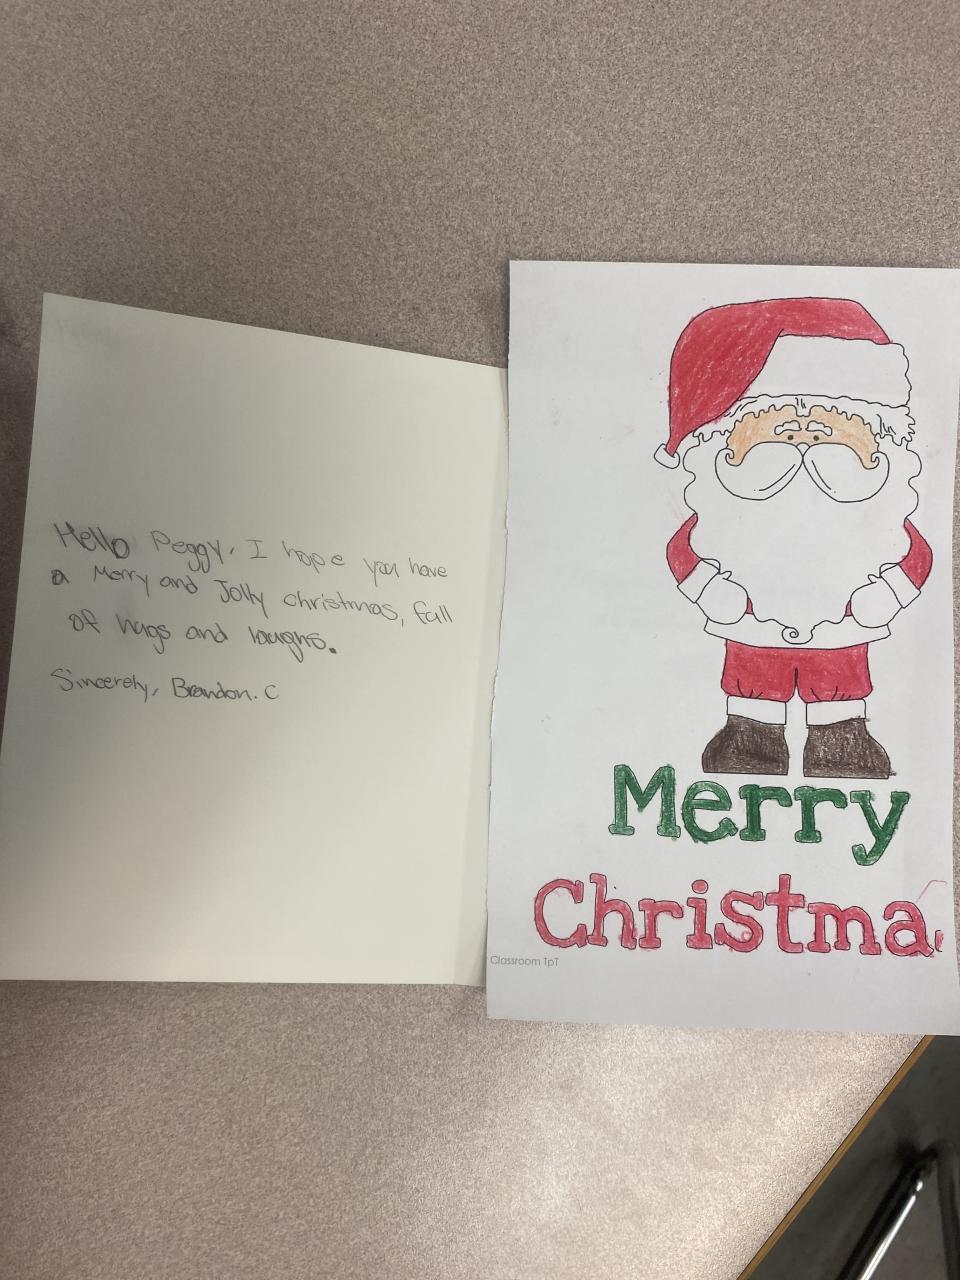 Hello Peggy, I hope you have
a Merry and Jolly christmas, full
of hugs and laughs.
Sincerely, Brandon. C
Merry
Christma
Classroom TpT